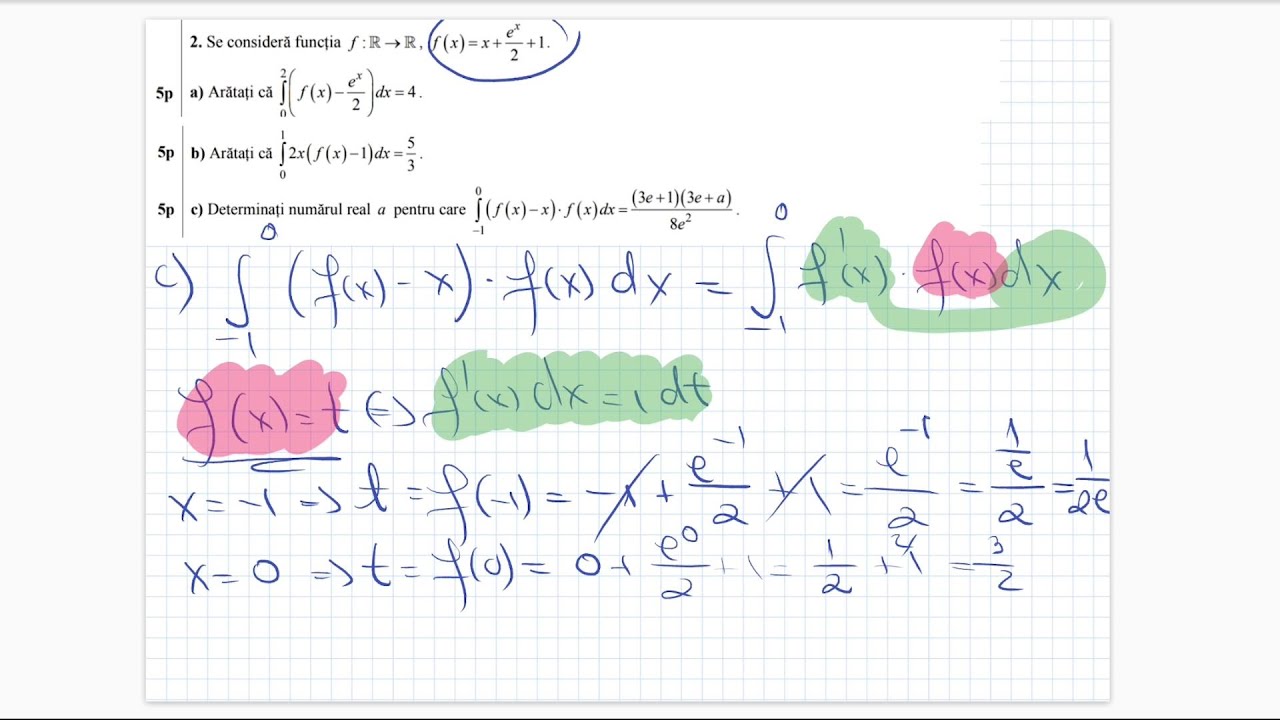 2. Se consideră funcția f : ℝ → ℝ, f(x) = x + e^x/2 + 1.
5p a) Arătați că ∫_0^2 (f(x) − e^x/2) dx = 4.
5p b) Arătați că ∫_0^1 2x(f(x) − 1) dx = 5/3.
5p c) Determinați numărul real a pentru care ∫_{-1}^0 (f(x) − x)·f(x) dx = (3e+1)(3e+a)/8e^2.
c) ∫_{-1}^0 (f(x) − x)·f(x) dx = ∫_{-1}^0 f'(x)·f(x) dx
f(x) = t <=> f'(x) dx = 1 dt
x = -1 => t = f(-1) = -1 + e^{-1}/2 + 1 = e^{-1}/2 = (1/e)/2 = 1/2e
x = 0 => t = f(0) = 0 + e^0/2 + 1 = 1/2 + 1 = 3/2